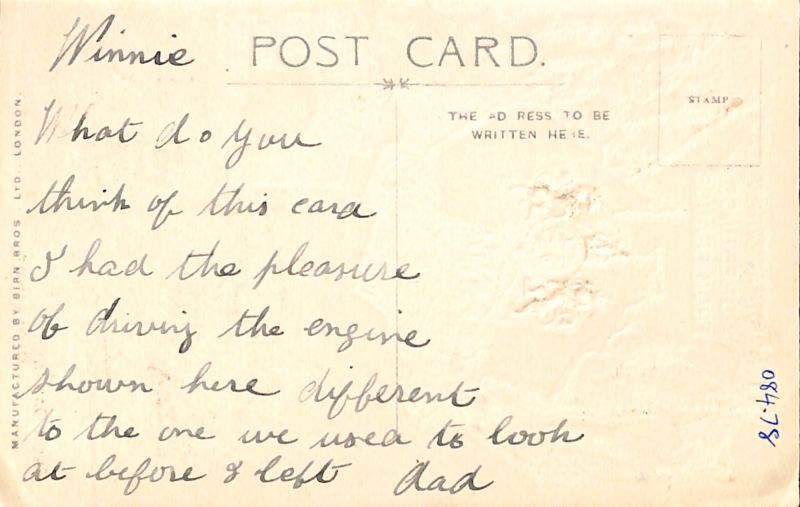 Winnie
POST CARD.
THE AD RESS TO BE
WRITTEN HERE.
STAMP
What do you
think of this card
I had the pleasure
of driving the engine
shown here different
to the one we used to look
at before I left Dad
MANUFACTURED BY BIRN BROS. LTD. LONDON.
084.78